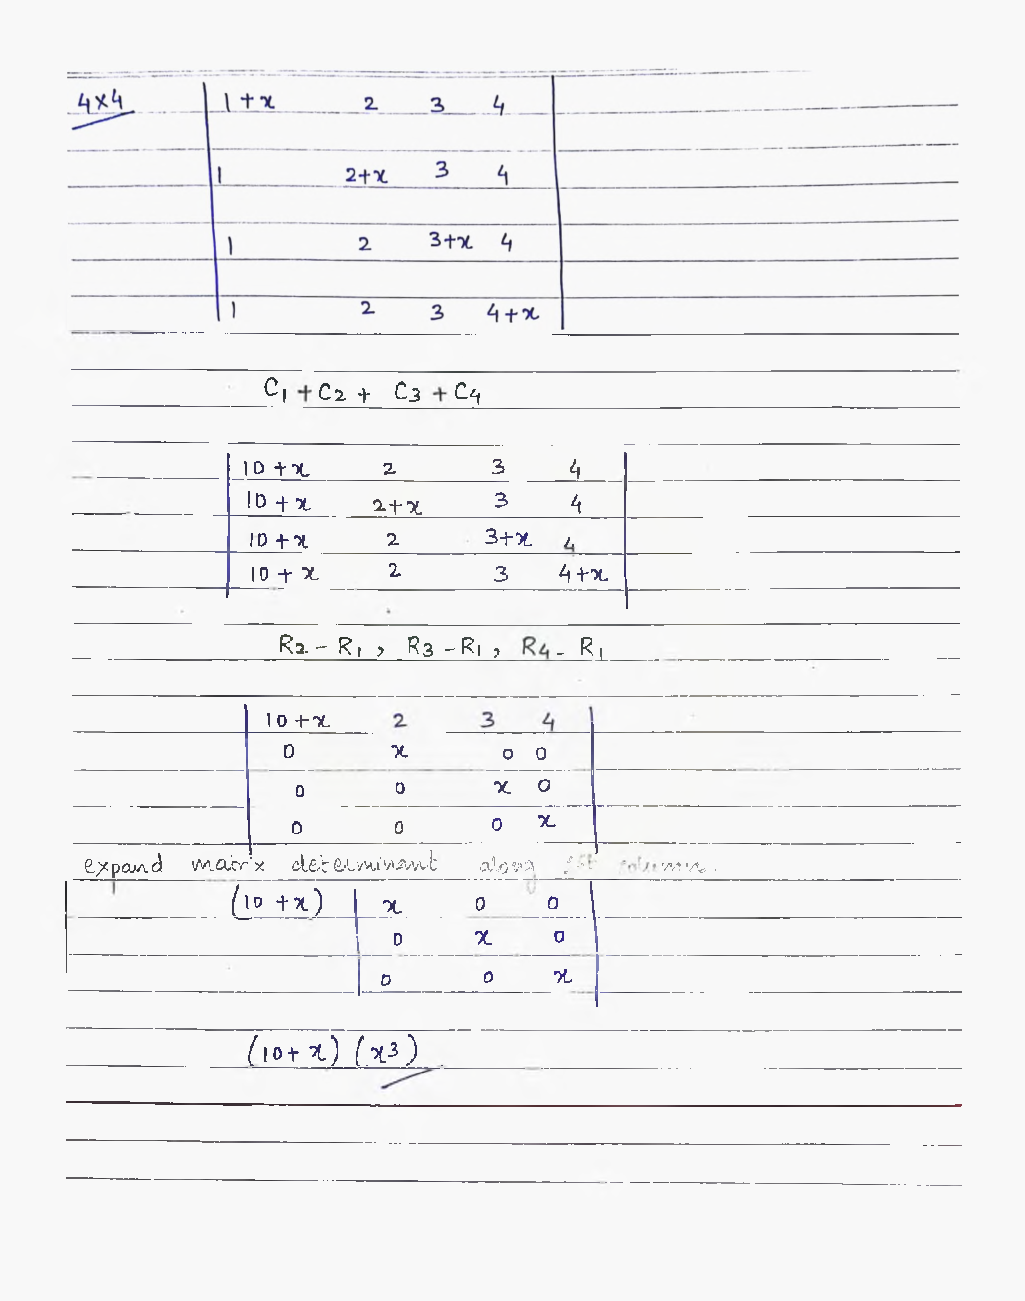 4x4 | 1+x 2 3 4 |
| 1 2+x 3 4 |
| 1 2 3+x 4 |
| 1 2 3 4+x |
C1 + C2 + C3 + C4
| 10+x 2 3 4 |
| 10+x 2+x 3 4 |
| 10+x 2 3+x 4 |
| 10+x 2 3 4+x |
R2 - R1, R3 - R1, R4 - R1
| 10+x 2 3 4 |
| 0 x 0 0 |
| 0 0 x 0 |
| 0 0 0 x |
expand matrix determinant along 1st column.
(10+x) | x 0 0 |
| 0 x 0 |
| 0 0 x |
(10+x) (x3)